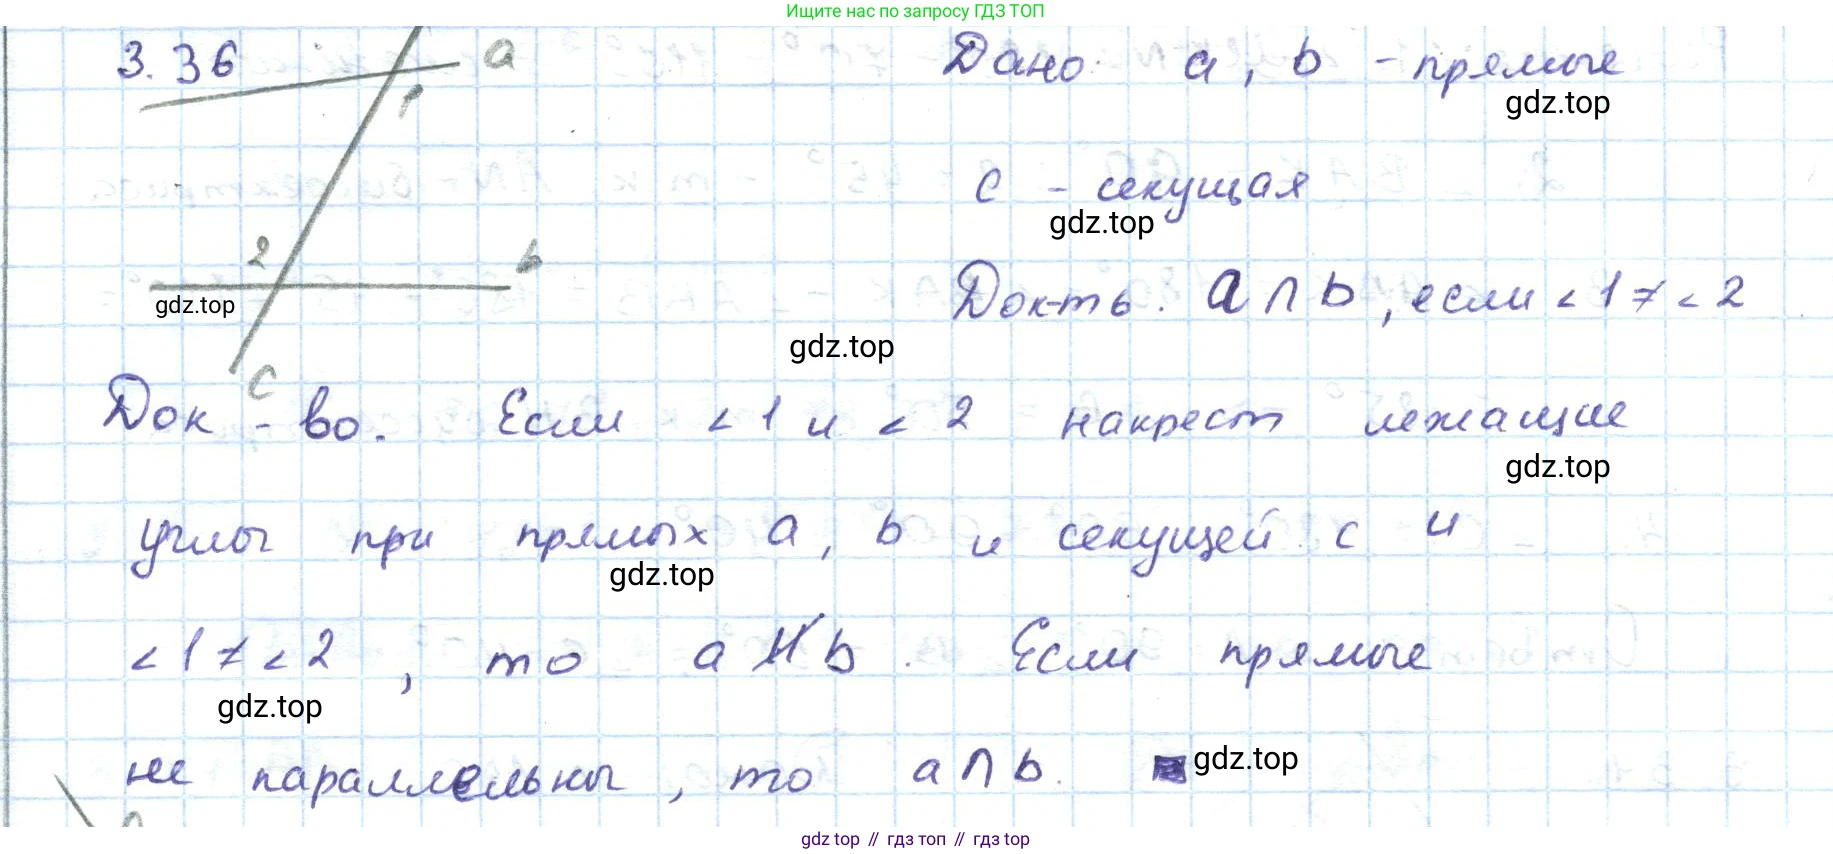 Ищите нас по запросу ГДЗ ТОП
3.36
a
Дано: a, b - прямые
gdz.top
1
c - секущая
gdz.top
2
b
gdz.top
Док-ть. a ∩ b, если <1 ≠ <2
gdz.top
c
Док-во. Если <1 и <2 накрест лежащие
gdz.top
углы при прямых a, b и секущей c и
gdz.top
<1 ≠ <2, то a ∦ b. Если прямые
gdz.top
не параллельны, то a ∩ b.
gdz.top
gdz top // гдз топ // gdz top